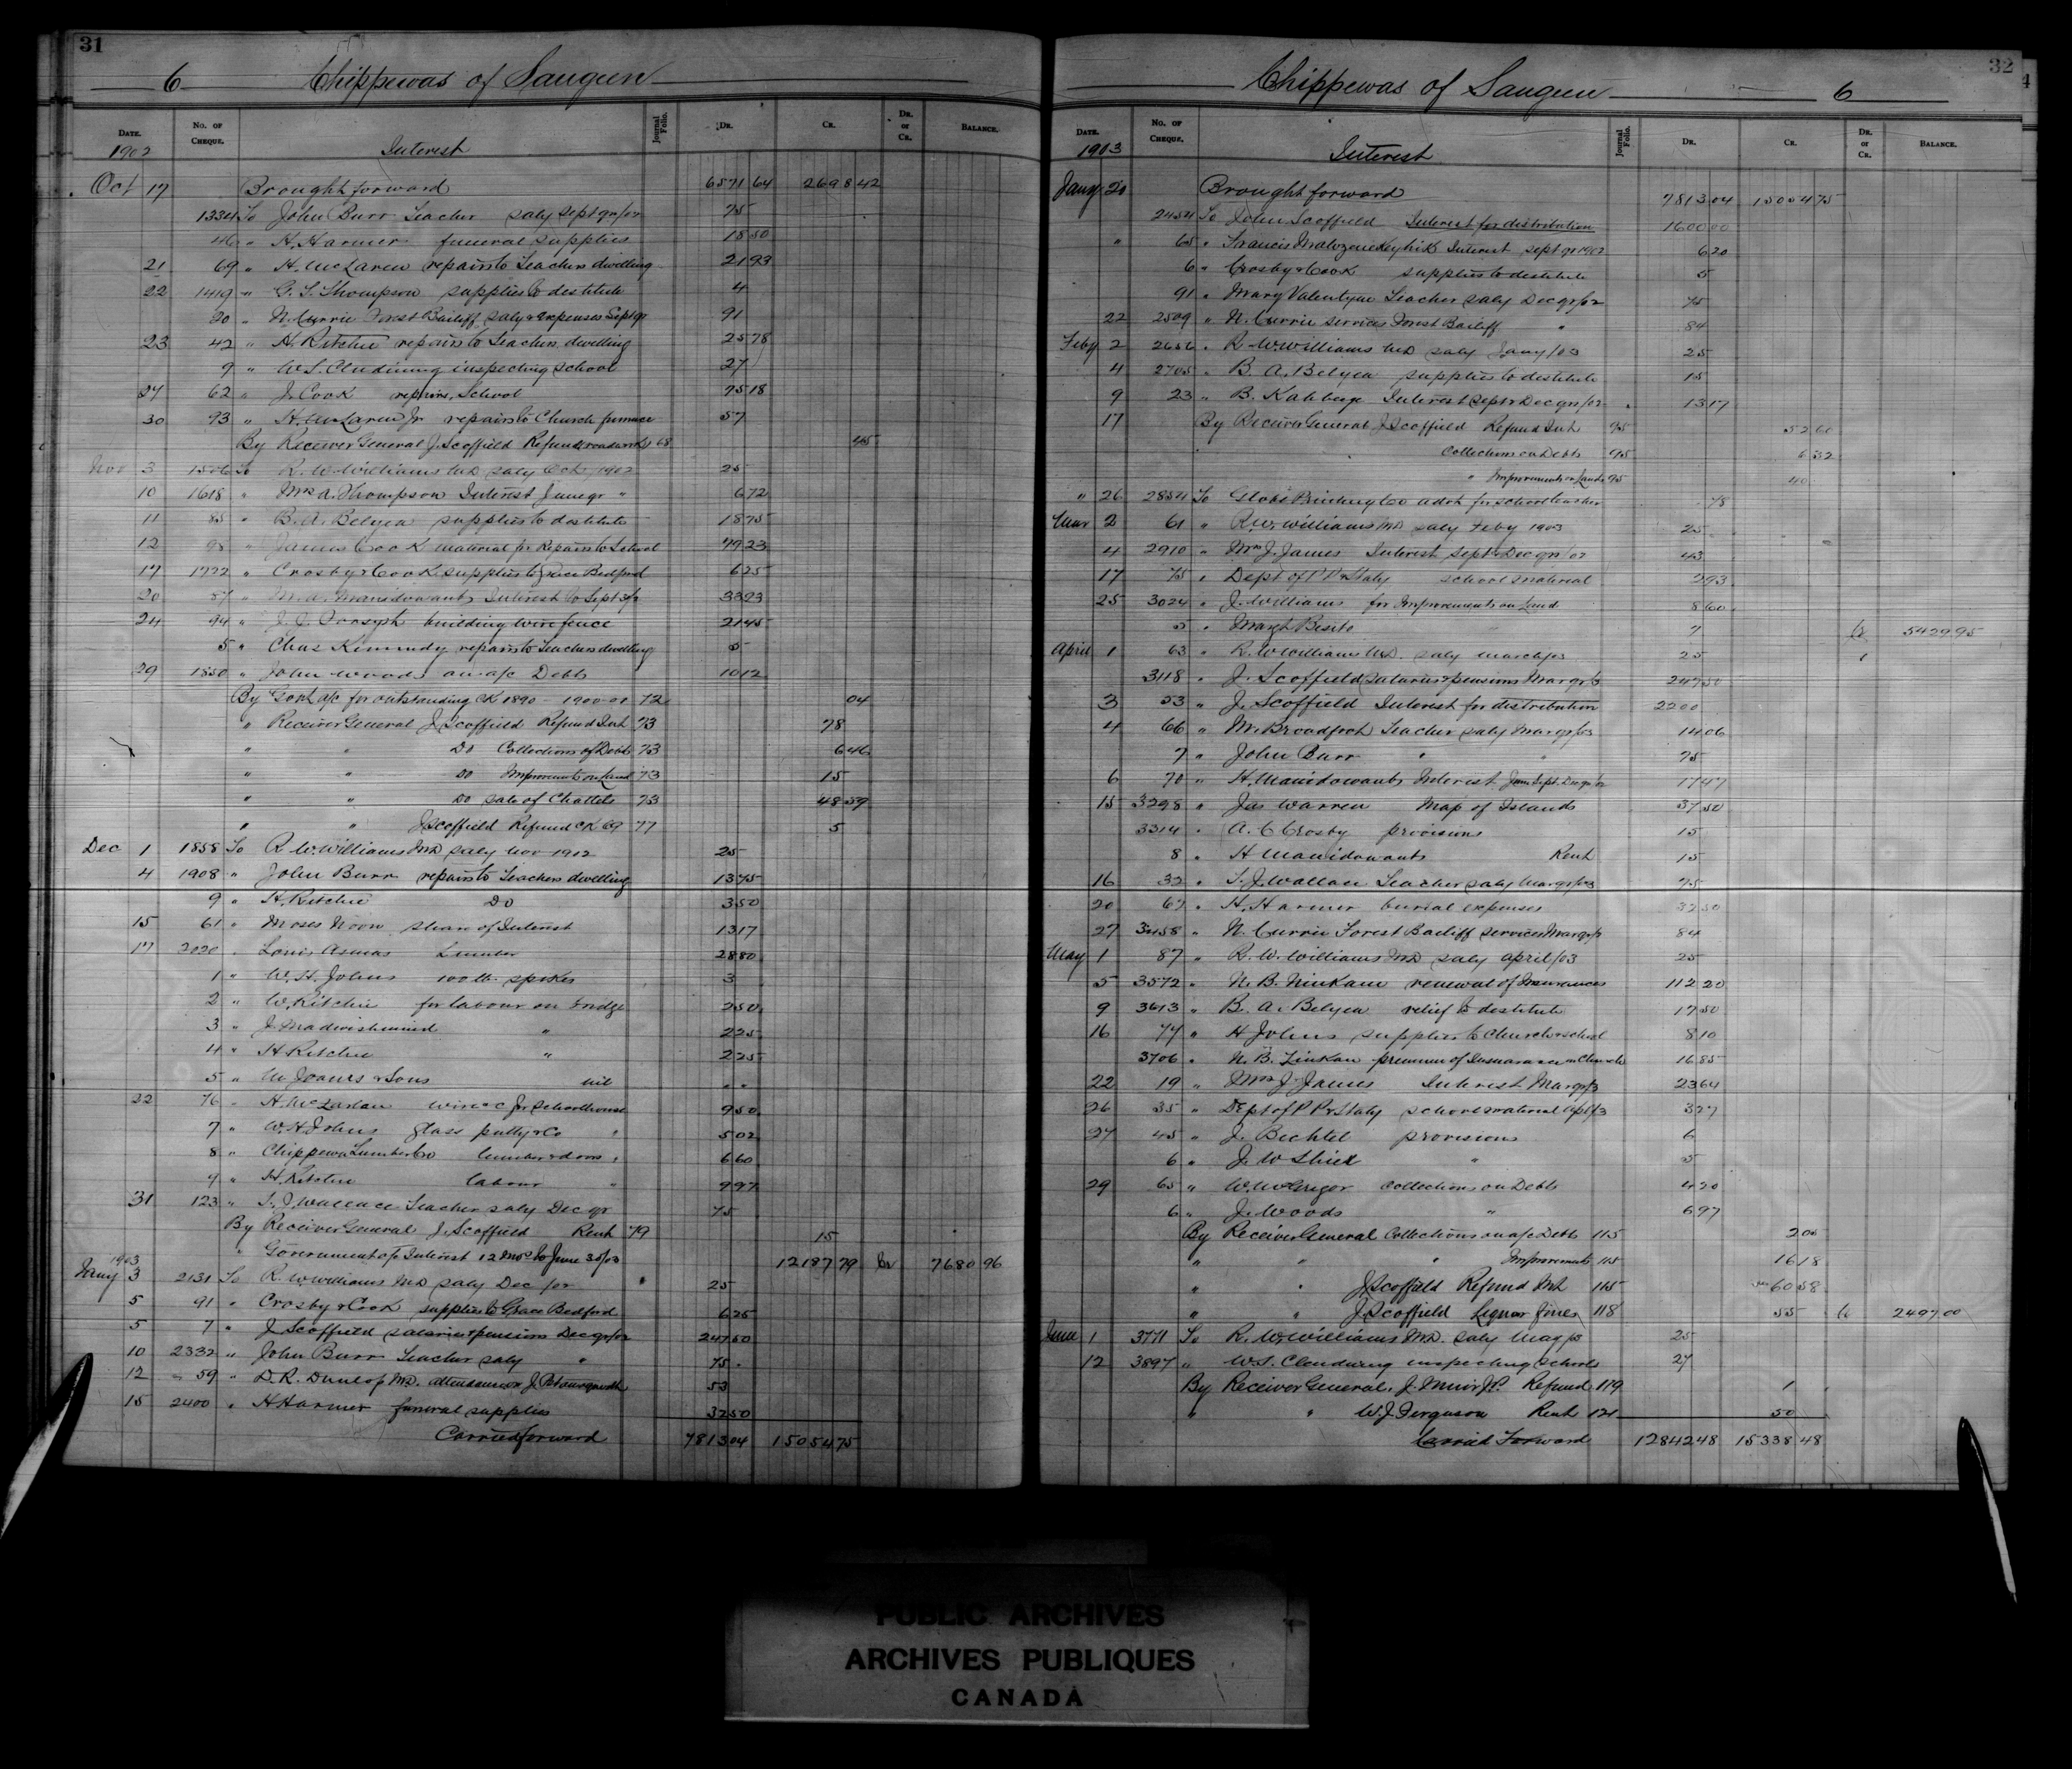 31
6 Chippewas of Saugeen
DATE. No. OF CHEQUE. Journal Folio. DR. CR. DR. or CR. BALANCE.
1902 Interest
Oct 17 Brought forward 6571 64 2698 42
1334 To John Burr Teacher saly Sept qr/02 75
46 " H. Harmer funeral supplies 18 50
21 69 " H. McLaren repairs to Teachers dwelling 21 93
22 1419 " G. S. Thompson supplies to destitute 4
20 " N. Currie Forest Bailiff saly & expenses Sept qr 91
23 42 " H. Ritchie repairs to Teachers dwelling 25 78
9 " W. S. Clendining inspecting school 27
27 62 " J. Cook repairs, School 75 18
30 93 " H. McLaren Jr repairs to Church furnace 57
By Receiver General J. Scoffield Refund roadwork 68 45
Nov 3 1506 To R. W. Williams MD saly Oct 1902 25
10 1618 " Mrs A. Thompson Interest June qr " 6 72
11 85 " B. A. Belyea supplies to destitute 18 75
12 98 " James Cook material for Repairs to School 79 23
17 1722 " Crosby & Cook supplies to Grace Bedford 6 25
20 87 " M. A. Manidowaub Interest to Sept 3/02 33 23
24 94 " J. J. Forsyth building wire fence 21 45
5 " Chas Kennedy repairs to Teachers dwelling 5
29 1850 " John Woods on a/c Debts 10 12
By Govt a/c for outstanding CK 1890 1900-01 72 04
" Receiver General J. Scoffield Refund Int 73 78
" " Do Collections of Debts 73 6 46
" " Do Improvements on Land 73 15
" " Do sale of Chattels 73 48 59
" " J Scoffield Refund CK 69 77 5
Dec 1 1858 To R. W. Williams MD saly Nov 1902 25
4 1908 " John Burr repairs to Teachers dwelling 13 75
9 " H. Ritchie Do 3 50
15 61 " Moses Noon share of Interest 13 17
17 2020 " Louis Asmus Lumber 28 80
1 " W. H. Johns 100 lb. spikes 3
2 " W. Ritchie for labour on bridge 2 50
3 " J. " 2 25
4 " H Ritchie " 2 25
5 " & Sons nil
22 76 " H. McLaren for Schoolhouse 9 50
7 " W. H. Johns glass putty & Co " 5 02
8 " Chippewa Lumber Co lumber & doors " 6 60
9 " H. Ritchie labour " 9 97
31 123 " T. J. Wallace Teacher saly Dec qr 75
By Receiver General J. Scoffield Rent 79 15
" Government a/c Interest 12 mos to June 30/03 12187 79 Cr 7680 96
1903
Jany 3 2131 To R. W. Williams MD saly Dec /02 25
5 91 " Crosby & Cook supplies to Grace Bedford 6 25
5 7 " J Scoffield salaries & pensions Dec qr/02 247 50
10 2332 " John Burr Teacher saly " 75
12 59 " D. R. Dunlop MD. attendance on J. 53
15 2400 " H Harmer funeral supplies 32 50
Carried forward 7813 04 15054 75
32
Chippewas of Saugeen 6
DATE. No. OF CHEQUE. Journal Folio. DR. CR. DR. or CR. BALANCE.
1903 Interest
Jany 20 Brought forward 7813 04 15054 75
2454 To John Scoffield Interest for distribution 1600 00
" 65 " Francis Interest sept qr 1902 6 20
6 " Crosby & Cook supplies to destitute 5
91 " Mary Valentyne Teacher saly Dec qr/02 75
22 2509 " N. Currie services Forest Bailiff " 84
Feby 2 2656 " R. W. Williams MD saly Jany/03 25
4 2705 " B. A. Belyea supplies to destitute 15
9 23 " B. Kahbege Interest Sept & Dec qrs/02 13 17
17 By Receiver General J Scoffield Refund Int 95 52 60
Collections on Debts 95 6 32
" Improvements on Lands 95 40
" 26 2854 To Globe Printing Co advt for school teacher 78
Mar 2 61 " R. W. Williams MD saly Feby 1903 25
4 2910 " Mrs J. James Interest Sept & Dec qrs/02 43
17 75 " Dept of P.P. & Staty school material 2 93
25 3024 " J. Williams for Improvements on Land 8 60
5 " Besito " 7 Cr 5429 95
April 1 63 " R. W. Williams MD. saly March/03 25
3118 " J. Scoffield salaries & pensions Mar qr/3 247 50
3 53 " J. Scoffield Interest for distribution 2200
4 66 " M. Broadfoot Teacher saly Mar qr/03 14 06
7 " John Burr " " 75
6 70 " H. Manidowaub Interest June Sept. Dec qr/02 17 47
15 3298 " Jas Warren Map of Islands 37 50
3314 " A. C Crosby provisions 15
8 " H Manidowaub Rent 15
16 32 " T. J. Wallace Teacher saly Mar qr/03 75
20 67 " H. Harmer burial expenses 32 50
27 3458 " N. Currie Forest Bailiff services Mar qr/3 84
May 1 87 " R. W. Williams MD saly April/03 25
5 3572 " N. B. Zinkan renewal of Insurances 112 20
9 3613 " B. A. Belyea relief to destitute 17 50
16 74 " H Johns supplies to church & school 8 10
3706 " N. B. Zinkan premium of Insurance on Church 16 85
22 19 " Mrs J. James Interest Mar qr/3 23 64
26 35 " Dept of P P & Staty school material 3 27
27 45 " J. Bechtel provisions 6
6 " J. W Shiel " 5
29 65 " W. McGregor Collections on Debts 4 20
6 " J. Woods " 6 97
By Receiver General Collections on a/c Debts 115 2 05
" " " Improvements 115 16 18
" " J Scoffield Refund Int 115 60 58
" " J. Scoffield Liquor fines 118 55 Cr 2497 00
June 1 3771 To R. W. Williams MD. saly May/3 25
12 3897 " W. S. Clendining inspecting schools 27
By Receiver General, J. Muir J.P. Refund 119 1
" " W. J. Ferguson Rent 121 50
Carried Forward 12842 48 15338 48
PUBLIC ARCHIVES
ARCHIVES PUBLIQUES
CANADA